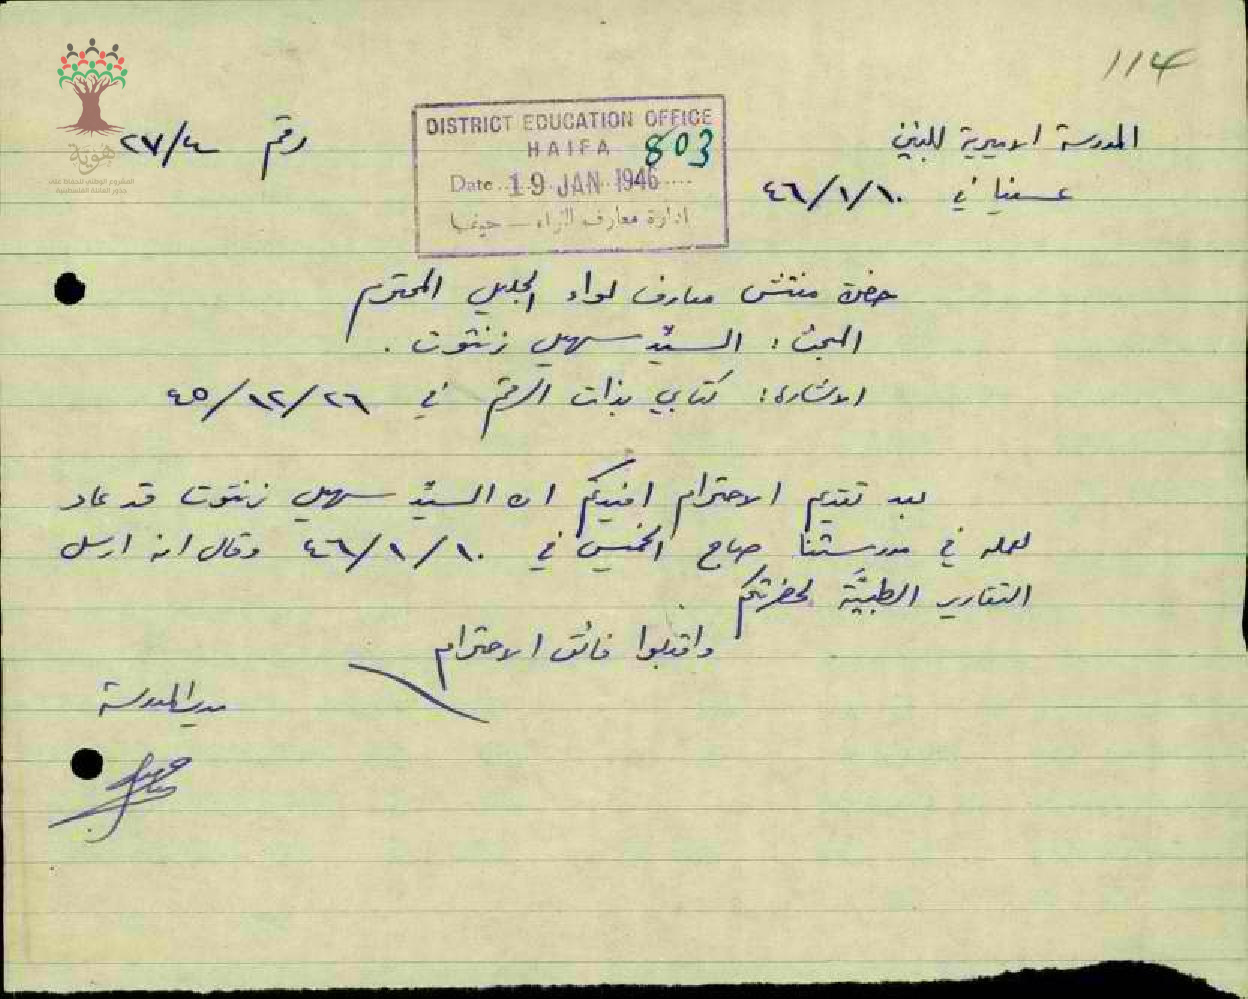 114
المدرسة الاميرية للبنين
رقم ٢٧/٤
عسفيا في ٤٦/١/١٠
DISTRICT EDUCATION OFFICE
HAIFA 803
Date 19 JAN 1946
ادارة معارف اللواء – حيفا
هوية
المشروع الوطني للحفاظ على
جذور العائلة الفلسطينية
حضرة مفتش معارف لواء الجليل المحترم
المبحث : السيّد سهيل زنتوت .
الاشارة : كتابي بذات الرقم في ٤٥/١٢/٢٦
بعد تقديم الاحترام افيدكم ان السيّد سهيل زنتوت قد عاد
لعمله في مدرستنا صباح الخميس في ٤٦/١/١٠ وقال انه ارسل
التقارير الطبيّة لحضرتكم .
واقبلوا فائق الاحترام
مدير المدرسة